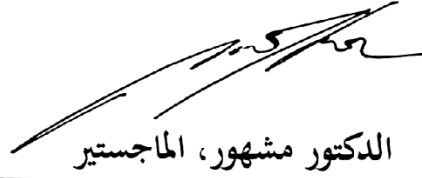 الدكتور مشهور، الماجستير